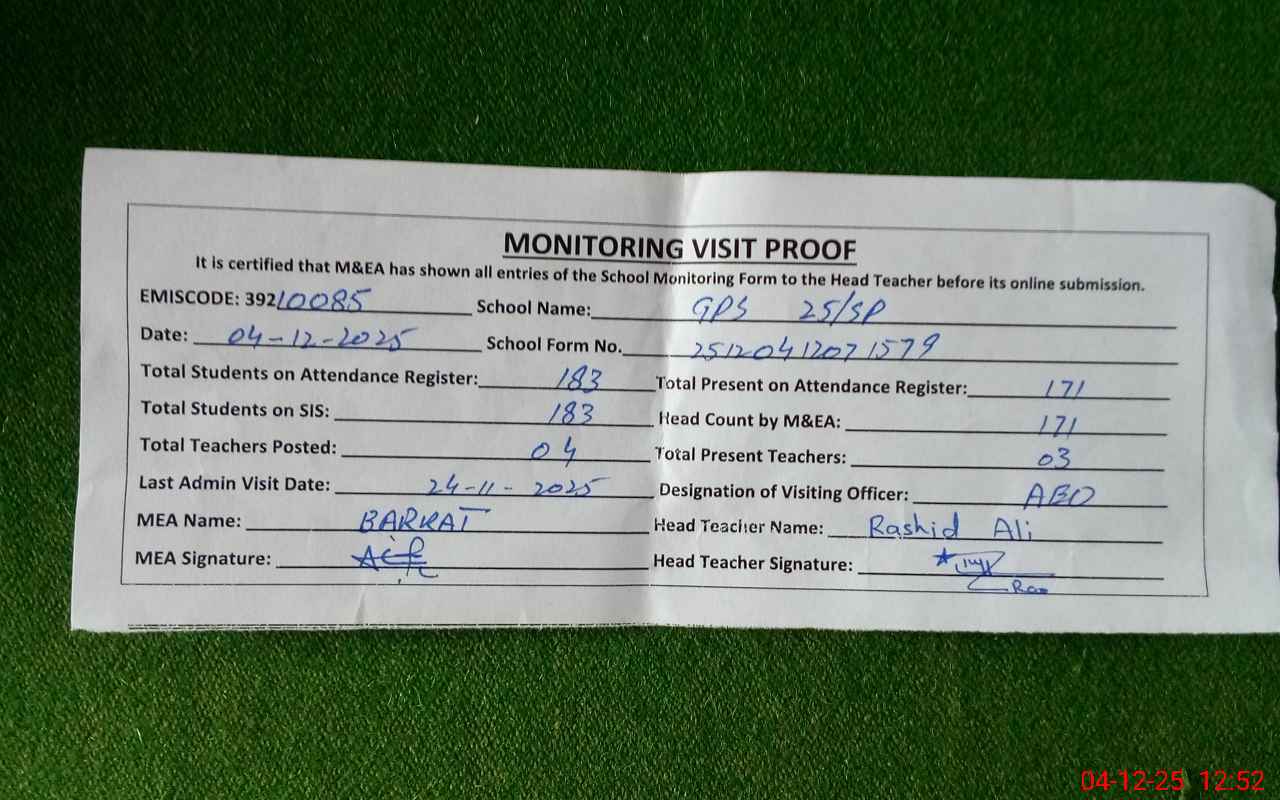 MONITORING VISIT PROOF
It is certified that M&EA has shown all entries of the School Monitoring Form to the Head Teacher before its online submission.
EMISCODE: 39210085 School Name: GPS 25/SP
Date: 04-12-2025 School Form No. 2512041207 1579
Total Students on Attendance Register: 183 Total Present on Attendance Register: 171
Total Students on SIS: 183 Head Count by M&EA: 171
Total Teachers Posted: 04 Total Present Teachers: 03
Last Admin Visit Date: 24-11-2025 Designation of Visiting Officer: AEO
MEA Name: BARKAT Head Teacher Name: Rashid Ali
MEA Signature: Head Teacher Signature:
04-12-25 12:52